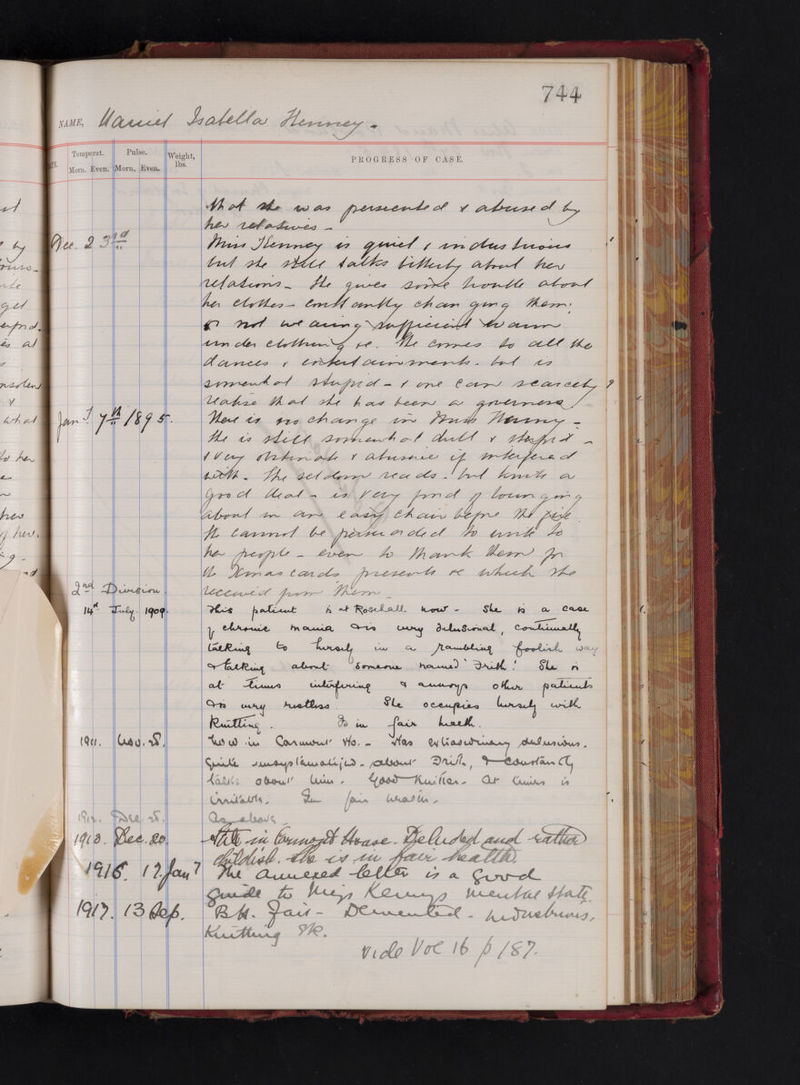 744
NAME, Harriet Isabella Henney.
Temperat. Pulse. Weight, lbs. PROGRESS OF CASE.
Morn. Even. Morn. Even.
that she was persecuted & abused by
her relatives -
Dec. 23rd Miss Henney is quiet & industrious
but she still talks bitterly about her
relations - She gives some trouble about
her clothes - constantly changing them:
or not wearing sufficient warm
under clothing &c. She comes to all the
dances & entertainments - but is
somewhat stupid - & one can scarcely
realise that she has been a governess
Jany 7th 1895. There is no change in Miss Henney -
She is still somewhat dull & stupid -
& very obstinate & abusive if interfered
with. She seldom reads - but knits a
good deal - is very fond of lounging
about in an easy chair before the fire.
She cannot be persuaded to write to
her people - even to thank them for
the Xmas cards, presents &c which she
received from them.
2nd Division
14th July 1909. This patient is at Rosehall now - She is a case
of chronic mania & is very delusional, continually
talking to herself in a rambling foolish way
& talking about "someone named Frith". She is
at times interfering & annoys other patients
& is very restless. She occupies herself with
Knitting. Is in fair health.
1911. Nov. 28. Now in Carmont Ho. - Has extraordinary delusions.
Quite unsystematized - about Frith, & constantly
talks about him. Good Knitter. At times is
irritable. In fair health.
1912. Dec. 28. As above
1913. Dec. 20. Still in Carmont House. Deluded and rather
childish. She is in fair health.
1916. 17. Jany The annexed letter is a good
guide to Miss Kennys mental state.
1917. 13 Sep. B.H. Fair - Demented - industrious,
Knitting &c.
Vide Vol 16 p 187.